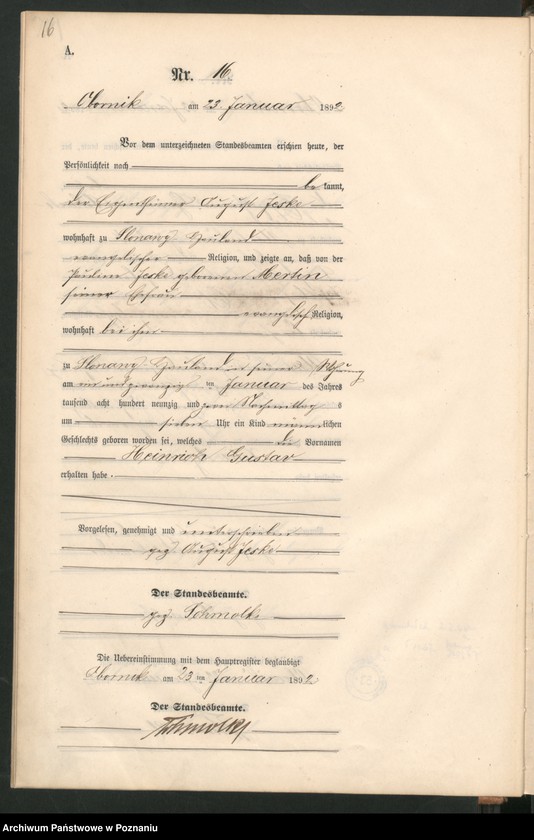 16
A.
Nr. 16.
Obornik am 23 Januar 1892
Vor dem unterzeichneten Standesbeamten erschien heute, der
Persönlichkeit nach
be kannt,
der Eigenthümer August Jeske
wohnhaft zu Slonawy Hauland
evangelischer Religion, und zeigte an, daß von der
Pauline Jeske geborenen Mertin
seiner Ehefrau
evangelisch Religion,
wohnhaft bei ihm
zu Slonawy Hauland in seiner Wohnung
am ein und zwanzigsten Januar des Jahres
tausend acht hundert neunzig und zwei Nachmittags
um sieben Uhr ein Kind männlichen
Geschlechts geboren worden sei, welches die Vornamen
Heinrich Gustav
erhalten habe.
Vorgelesen, genehmigt und unterschrieben
gez. August Jeske
Der Standesbeamte.
gez. Schmolke
Die Uebereinstimmung mit dem Hauptregister beglaubigt
Obornik am 23 ten Januar 1892
Der Standesbeamte.
Schmolke
Archiwum Państwowe w Poznaniu